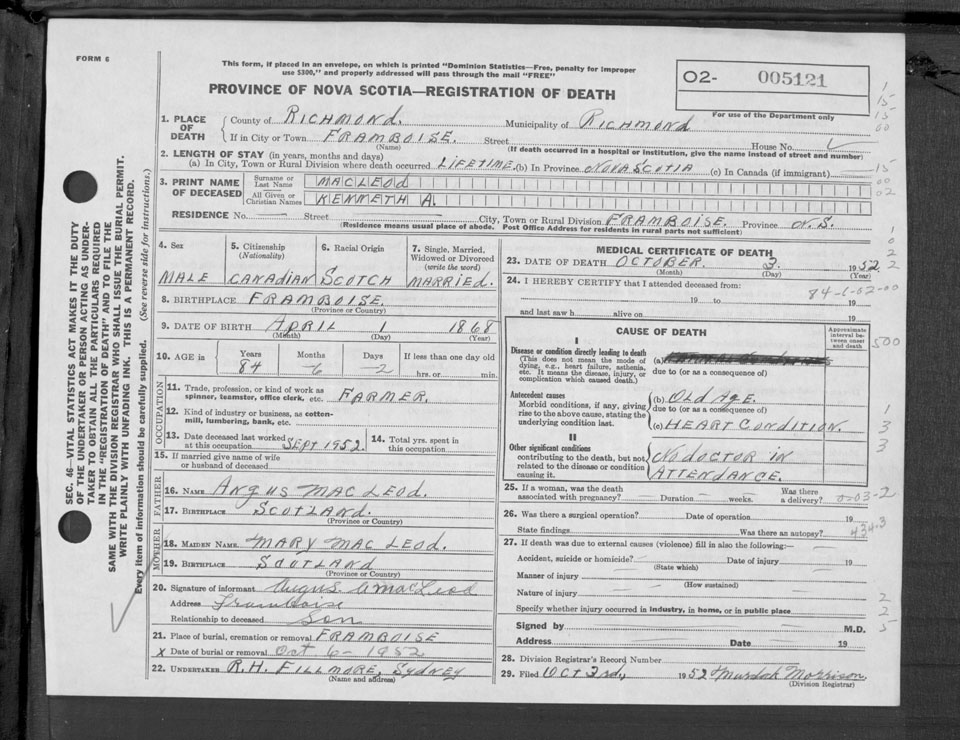 FORM 6
This form, if placed in an envelope, on which is printed "Dominion Statistics—Free, penalty for improper
use $300," and properly addressed will pass through the mail "FREE"
PROVINCE OF NOVA SCOTIA—REGISTRATION OF DEATH
O2- 005121
For use of the Department only
1. PLACE OF DEATH
County of RICHMOND. Municipality of RICHMOND
If in City or Town FRAMBOISE. Street House No.
(Name) (If death occurred in a hospital or institution, give the name instead of street and number)
2. LENGTH OF STAY (in years, months and days)
(a) In City, Town or Rural Division where death occurred LIFETIME. (b) In Province NOVA SCOTIA (c) In Canada (if immigrant)
3. PRINT NAME OF DECEASED
Surname or Last Name MACLEOD
All Given or Christian Names KENNETH A.
RESIDENCE No. — Street — City, Town or Rural Division FRAMBOISE. Province N.S.
(Residence means usual place of abode. Post Office Address for residents in rural parts not sufficient)
4. Sex 5. Citizenship (Nationality) 6. Racial Origin 7. Single, Married, Widowed or Divorced (write the word)
MALE CANADIAN SCOTCH MARRIED.
8. BIRTHPLACE FRAMBOISE.
(Province or Country)
9. DATE OF BIRTH APRIL 1 1868
(Month) (Day) (Year)
10. AGE in Years Months Days If less than one day old
84 6 2 hrs. or min.
OCCUPATION
11. Trade, profession, or kind of work as spinner, teamster, office clerk, etc. FARMER.
12. Kind of industry or business, as cotton-mill, lumbering, bank, etc.
13. Date deceased last worked at this occupation SEPT 1952. 14. Total yrs. spent in this occupation
15. If married give name of wife or husband of deceased
FATHER
16. NAME ANGUS MACLEOD.
17. BIRTHPLACE SCOTLAND.
(Province or Country)
MOTHER
18. MAIDEN NAME MARY MACLEOD.
19. BIRTHPLACE SCOTLAND
(Province or Country)
20. Signature of informant Angus MacLeod
Address Framboise
Relationship to deceased Son
21. Place of burial, cremation or removal FRAMBOISE
x Date of burial or removal Oct 6 - 1952
22. UNDERTAKER R.H. FILLMORE, SYDNEY
(Name and address)
MEDICAL CERTIFICATE OF DEATH
23. DATE OF DEATH OCTOBER. 3. 1952
(Month) (Day) (Year)
24. I HEREBY CERTIFY that I attended deceased from:
19 to 19
and last saw h alive on 19
CAUSE OF DEATH
Approximate interval between onset and death
I
Disease or condition directly leading to death
(This does not mean the mode of dying, e.g., heart failure, asthenia, etc. It means the disease, injury, or complication which caused death.)
(a)
due to (or as a consequence of)
Antecedent causes
Morbid conditions, if any, giving rise to the above cause, stating the underlying condition last.
(b) OLD AGE.
due to (or as a consequence of)
(c) HEART CONDITION.
II
Other significant conditions
contributing to the death, but not related to the disease or condition causing it.
NO DOCTOR IN
ATTENDANCE.
25. If a woman, was the death associated with pregnancy? Duration weeks. Was there a delivery?
26. Was there a surgical operation? Date of operation 19
State findings Was there an autopsy?
27. If death was due to external causes (violence) fill in also the following:—
Accident, suicide or homicide? Date of injury 19
(State which)
Manner of injury
(How sustained)
Nature of injury
Specify whether injury occurred in industry, in home, or in public place
Signed by M.D.
Address Date 19
28. Division Registrar's Record Number
29. Filed OCT 3rd, 1952 Murdoch Morrison
(Division Registrar)
SEC. 46—VITAL STATISTICS ACT MAKES IT THE DUTY
OF THE UNDERTAKER OR PERSON ACTING AS UNDER-
TAKER TO OBTAIN ALL THE PARTICULARS REQUIRED
IN THE "REGISTRATION OF DEATH" AND TO FILE THE
SAME WITH THE DIVISION REGISTRAR WHO SHALL ISSUE THE BURIAL PERMIT.
WRITE PLAINLY WITH UNFADING INK. THIS IS A PERMANENT RECORD.
Every item of information should be carefully supplied. (See reverse side for instructions.)